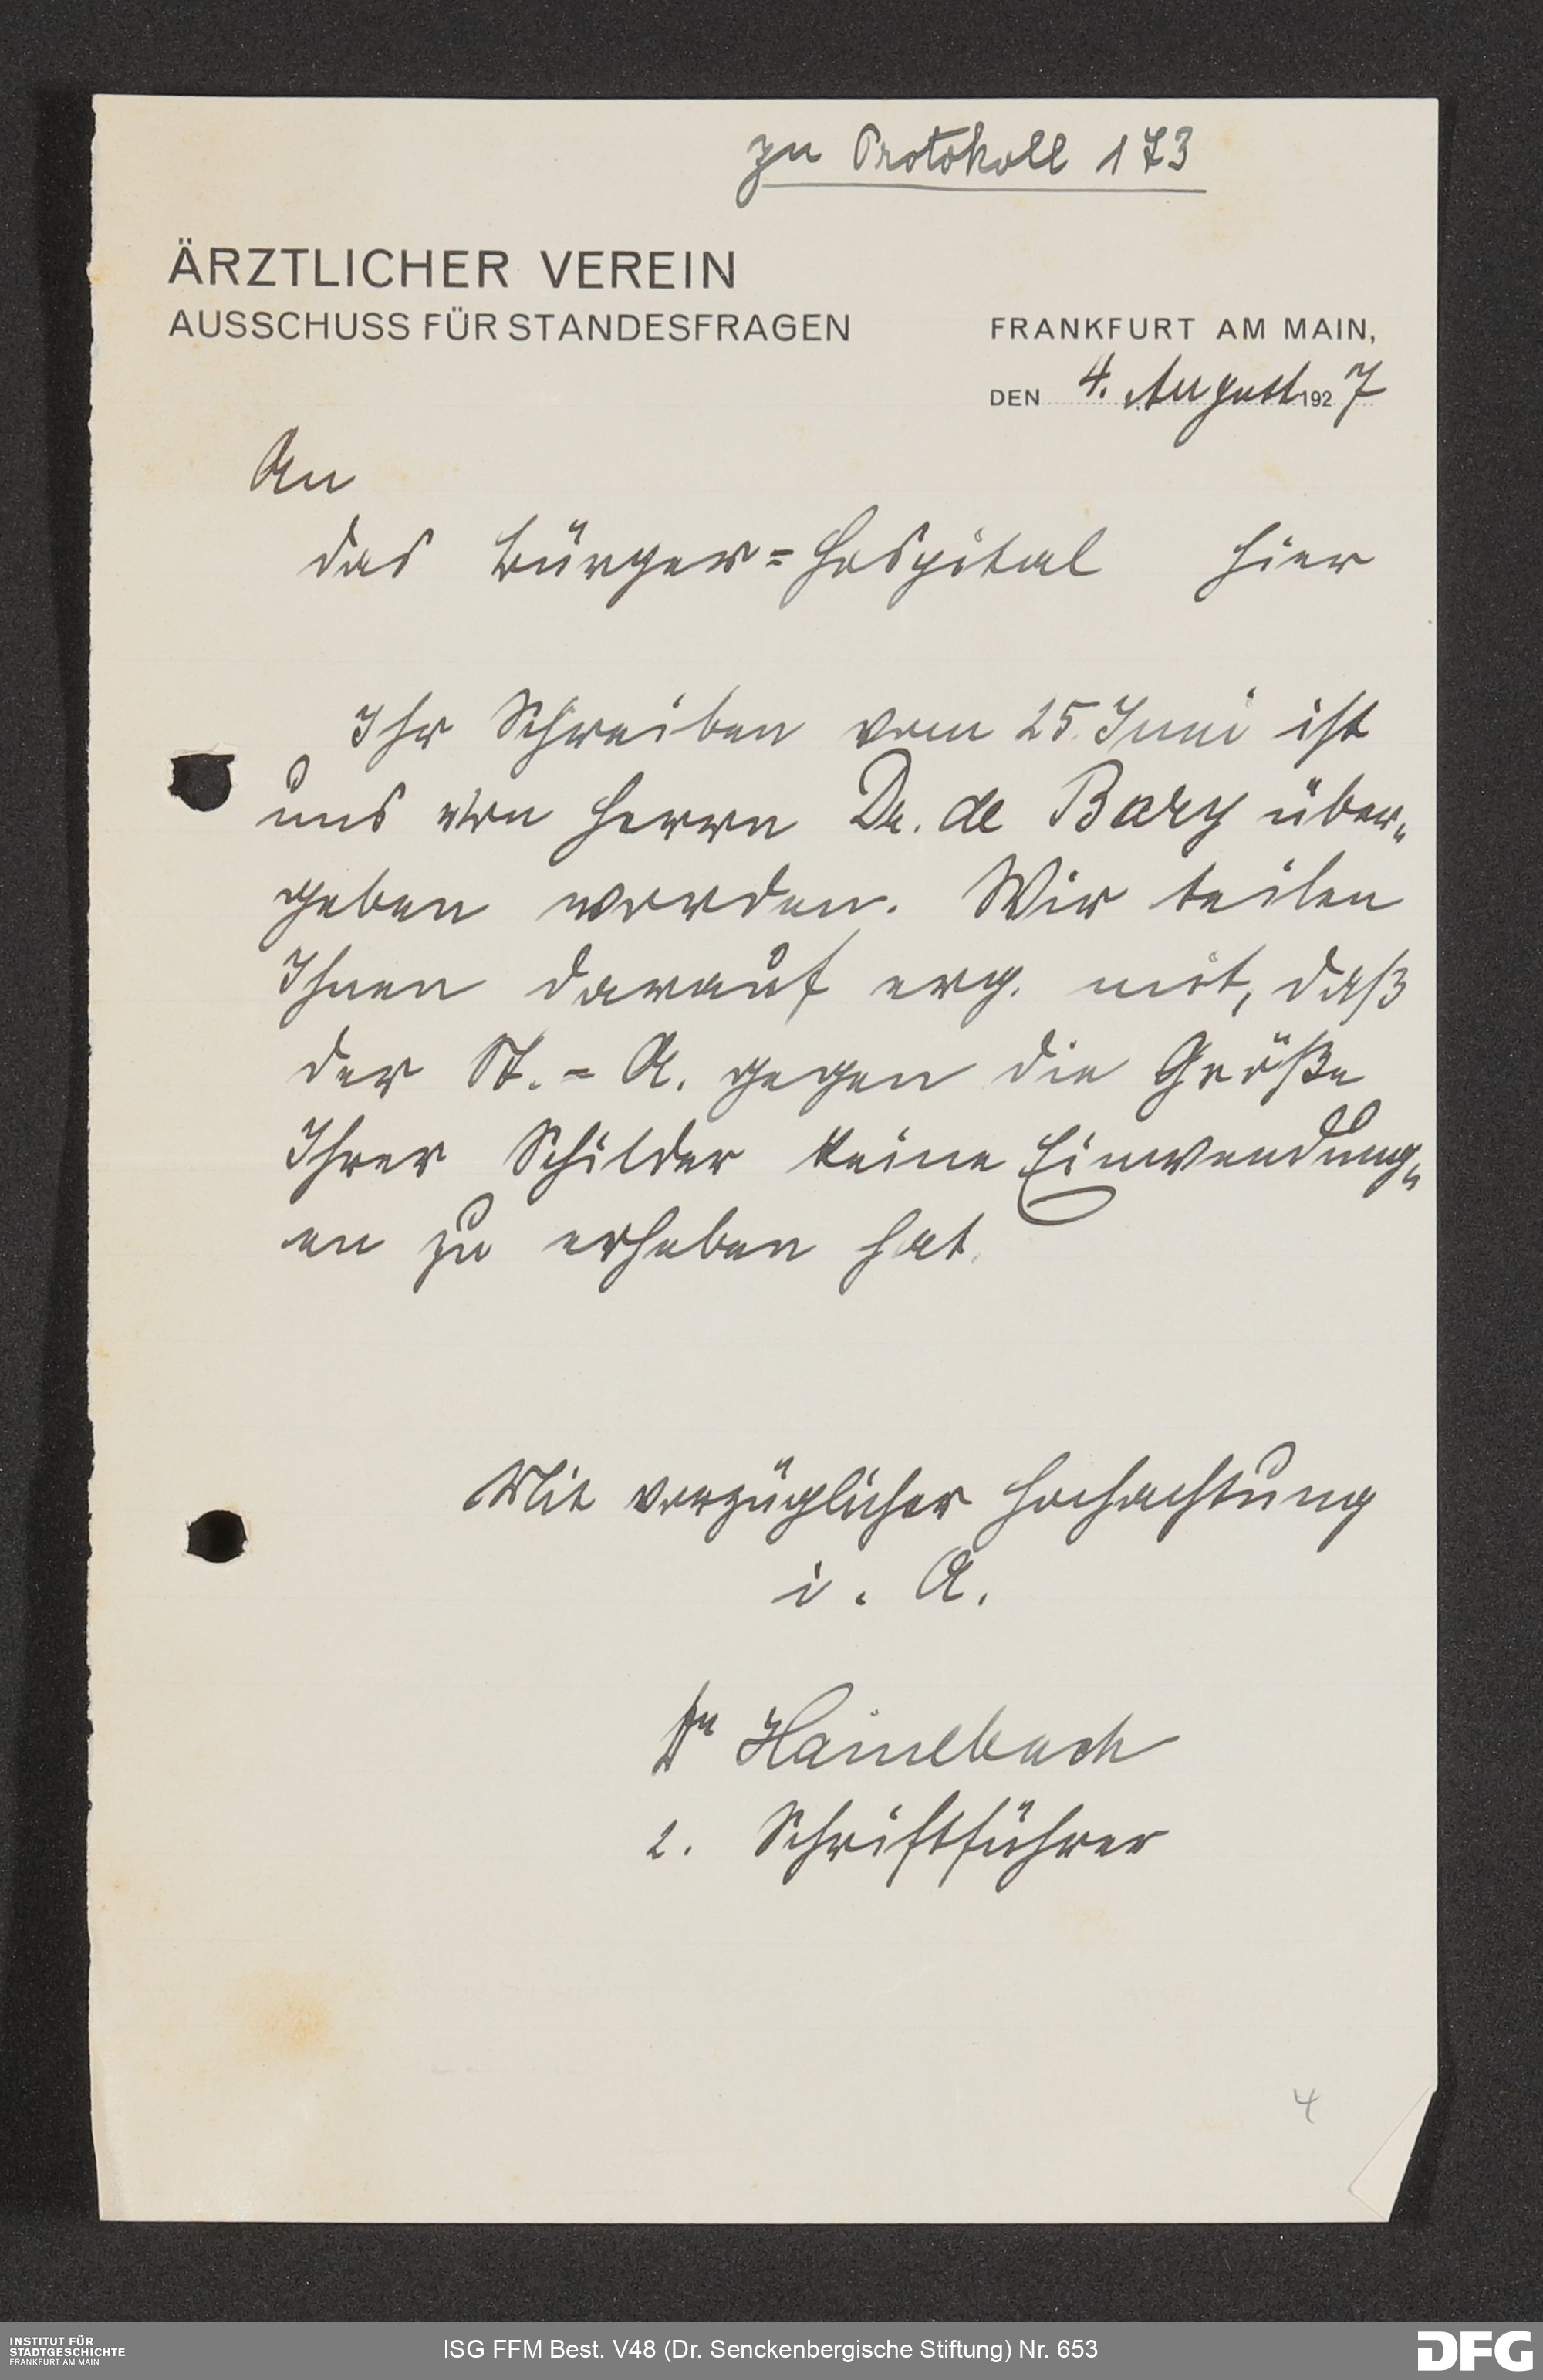 zu Protokoll 173
ÄRZTLICHER VEREIN
AUSSCHUSS FÜR STANDESFRAGEN
FRANKFURT AM MAIN,
DEN 4. August 1927
An
das Bürger=Hospital hier
Ihr Schreiben vom 25. Juni ist
uns von Herrn Dr. de Bary über„
geben worden. Wir teilen
Ihnen darauf erg. mit, daß
der St.=A. gegen die Größe
Ihrer Schilder keine Einwendung„
en zu erheben hat.
Mit vorzüglicher Hochachtung
i. A.
Dr Hainebach
2. Schriftführer
4
INSTITUT FÜR
STADTGESCHICHTE
FRANKFURT AM MAIN
ISG FFM Best. V48 (Dr. Senckenbergische Stiftung) Nr. 653
DFG